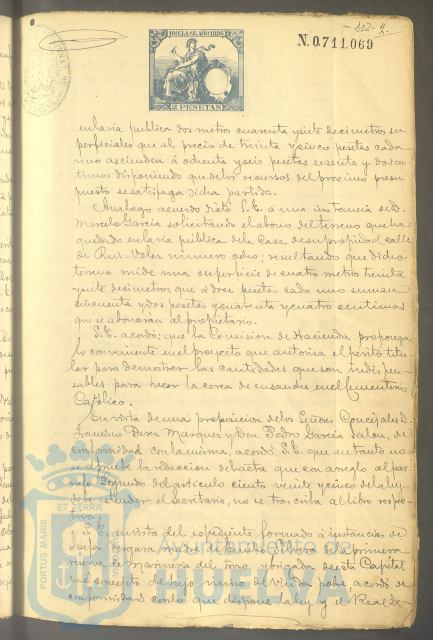 102-2
10ª CLASE. AÑO 1886
N.0.711.069
2 PESETAS
en la via publica dos metros cuarenta y siete decimetros su
perficiales que al precio de treinta y cinco pesetas cada
uno ascienden á ochenta y seis pesetas sesenta y dos cen
timos disponiendo que de los recursos del proximo presu
puesto se satisfaga dicha partida.
Analogo acuerdo dictó S.E. á una instancia de D.
Marcelo Garcia solicitando el abono del terreno que ha
quedado en la via pública de la Casa de su propiedad calle
de Ruiz-Velez número ocho; resultando que dicho
terreno mide una superficie de cuatro metros treinta
y siete decimetros, que á doce pesetas cada uno suman
cincuenta y dos pesetas y cuarenta y cuatro centimos
que se abonarán al propietario.
S.E. acordó: que la Comision de Hacienda proponga
lo conveniente en el proyecto que autoriza el perito titu
lar para demostrar las cantidades que son indispen
sables para hacer la cerca de ensanche en el Cementerio
Católico.
En vista de una proposicion de los Señores Concejales D.
Francisco Perez Marquez y Don Pedro Garcia Jalon, de
conformidad con la misma, acordó S.E. que en tanto no
se apruebe la redaccion del acta que con arreglo al par
rafo segundo del articulo ciento veinte y cinco de la ley
debe estender el Secretario, no se trascriba al libro respec
tivo.
S.E. en vista del espediente formado á instancias de
Josefa Vergara, madre de Claudio Silvera de primera
nueva de marineria del trozo y brigada de esta Capital
en el concepto de hijo unico de Viuda pobre acordó de
conformidad con lo que dispone la ley y el Real De-
PORTUS MARIS ET TERRÆ
Ayuntamiento de
HUELVA